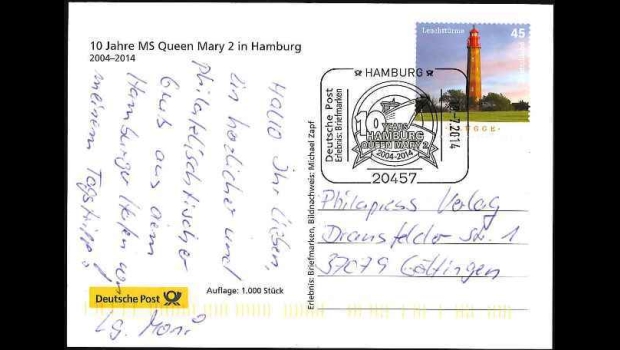 10 Jahre MS Queen Mary 2 in Hamburg
2004–2014
Hallo Ihr Lieben,
ein herzlicher und
philatelistischer
Gruß aus dem
Hamburger Hafen von
meinem Tagstripp!
Lg. Moni
Deutsche Post
Auflage: 1.000 Stück
Erlebnis: Briefmarken, Bildnachweis: Michael Zapf
Leuchttürme
45
FLÜGGE
HAMBURG
Deutsche Post
Erlebnis: Briefmarken
10
YEARS
HAMBURG
QUEEN MARY 2
2004-2014
20457
.7.2014
Philapress Verlag
Dransfelder Str. 1
37079 Göttingen